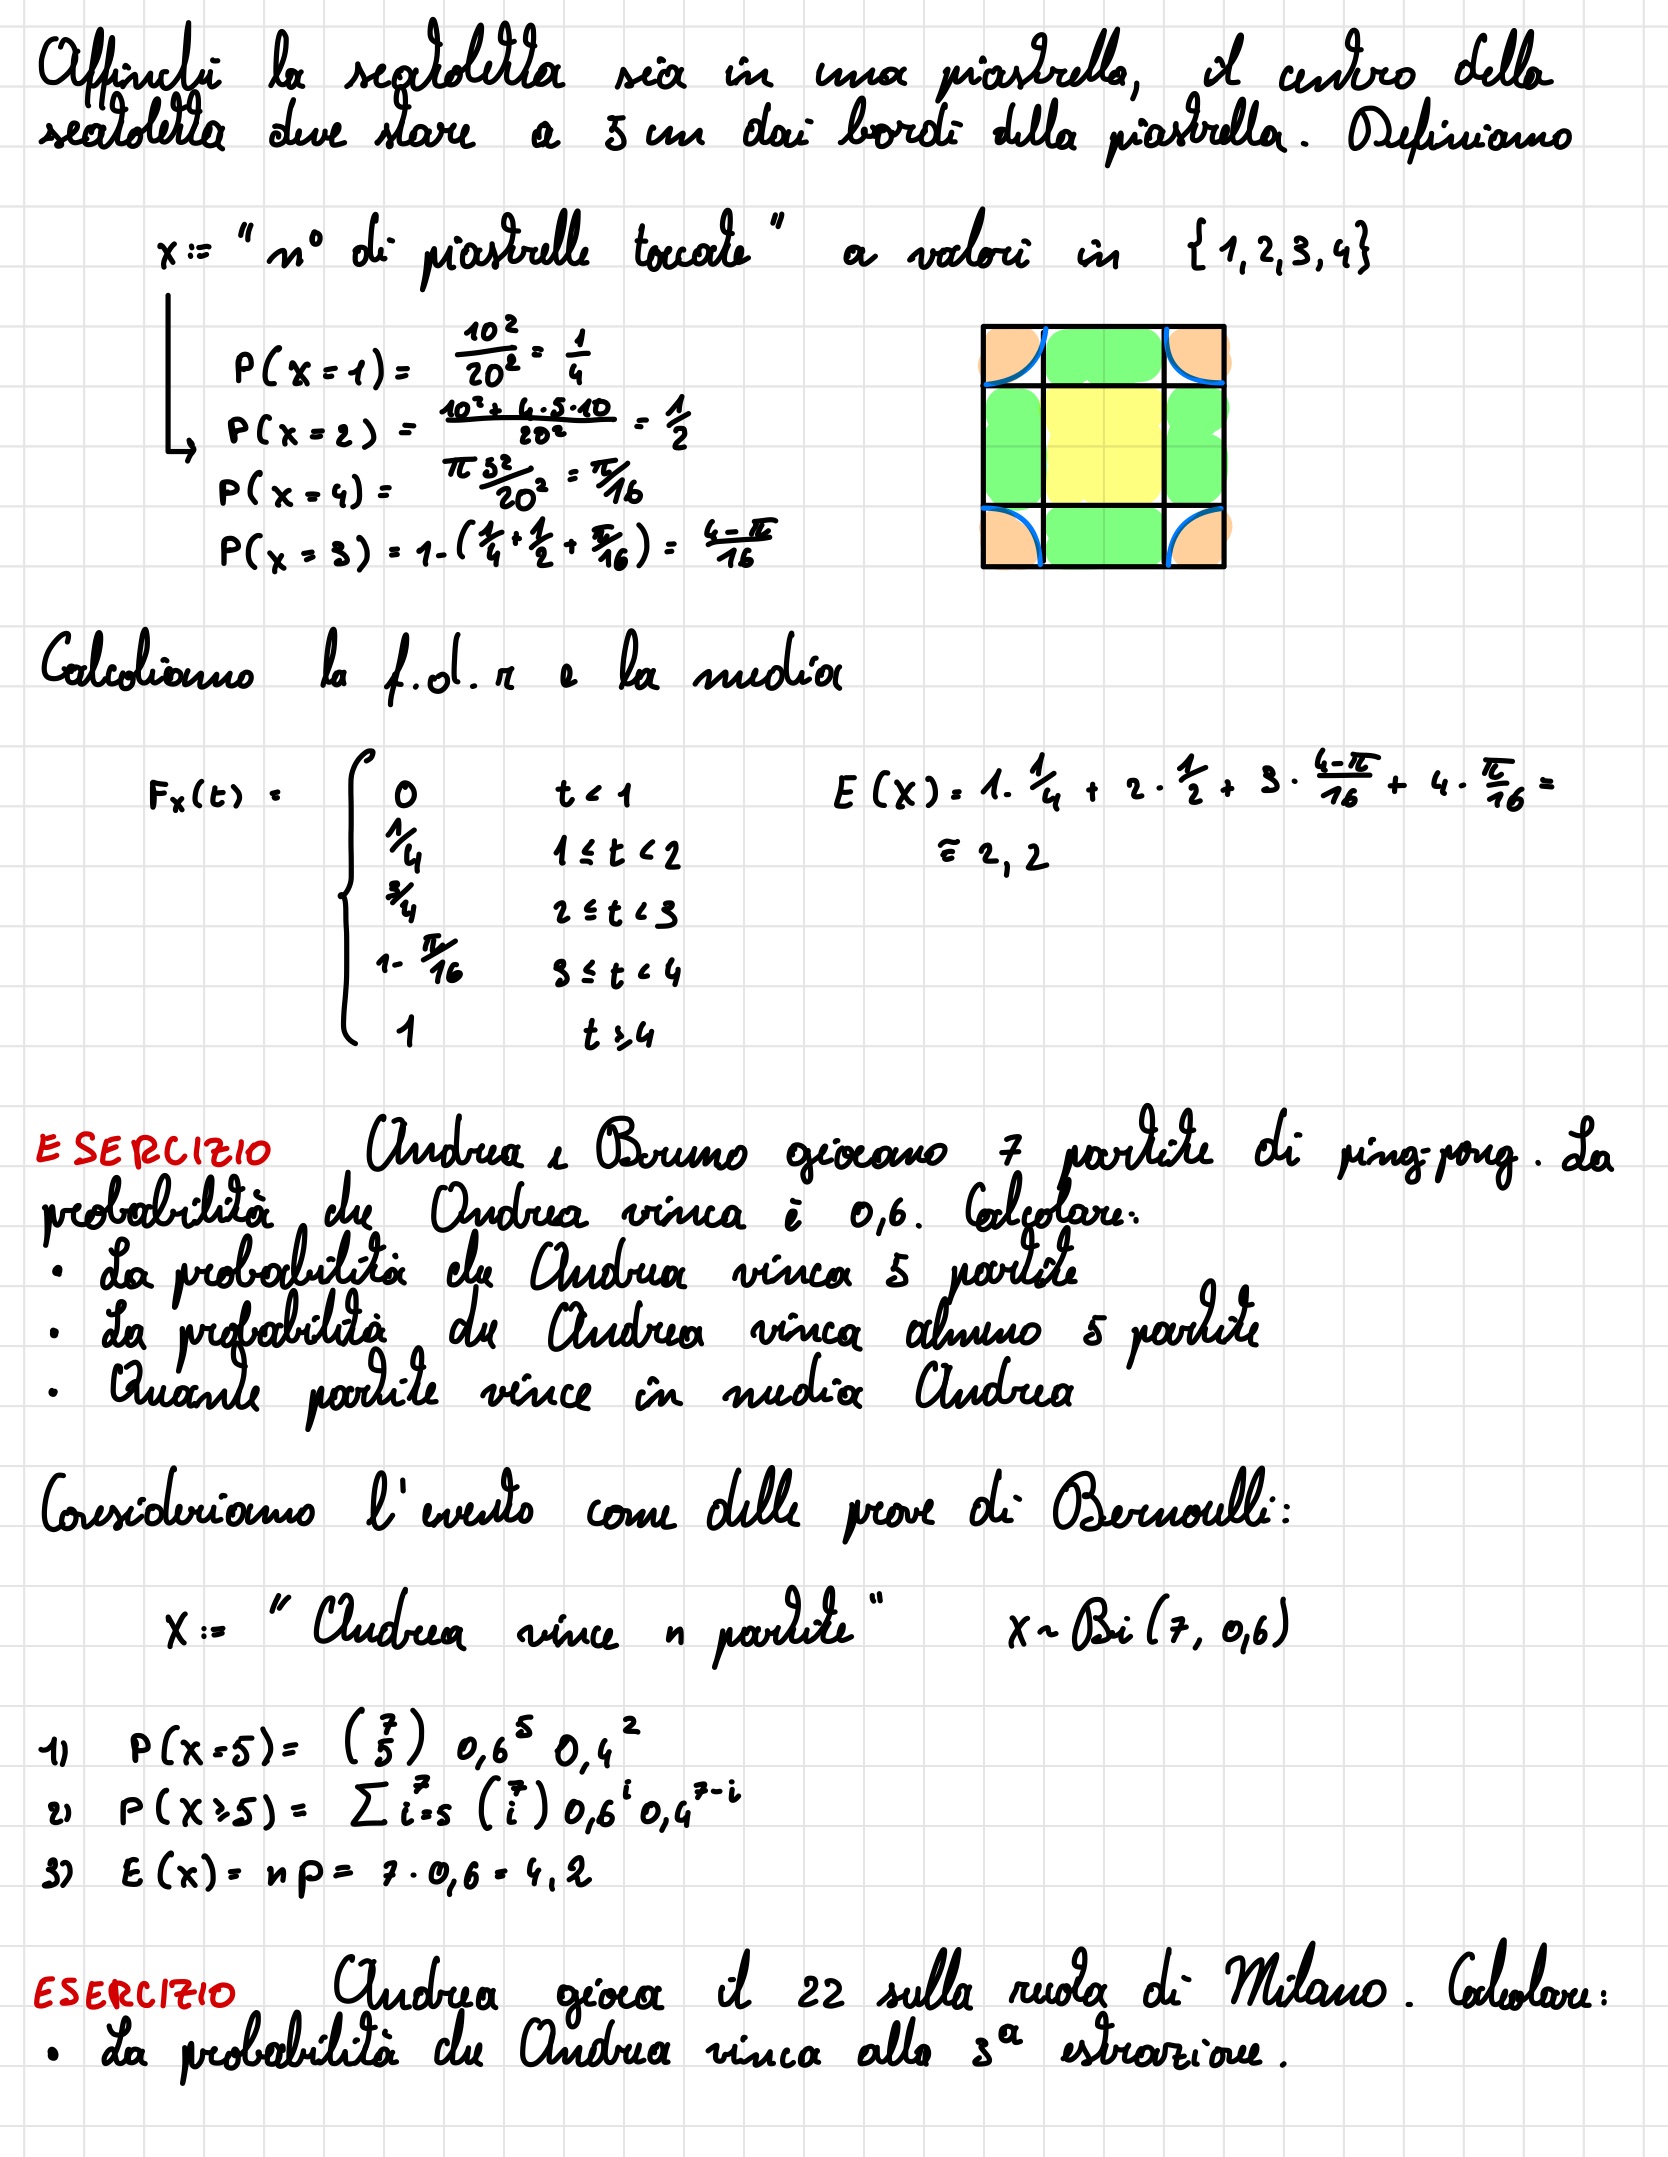 Affinché la scatoletta sia in una piastrella, il centro della
scatoletta deve stare a 5 cm dai bordi della piastrella. Definiamo
X := " n° di piastrelle toccate " a valori in {1,2,3,4}
P(X=1) = 10²/20² = 1/4
P(X=2) = (10² + 4·5·10)/20² = 1/2
P(X=4) = π 5²/20² = π/16
P(X=3) = 1-(1/4 + 1/2 + π/16) = (4-π)/16
Calcoliamo la f.d.r e la media
F_X(t) = { 0 t < 1
1/4 1 ≤ t < 2
3/4 2 ≤ t < 3
1- π/16 3 ≤ t < 4
1 t ≥ 4
E(X) = 1· 1/4 + 2· 1/2 + 3· (4-π)/16 + 4· π/16 =
≅ 2,2
ESERCIZIO Andrea e Bruno giocano 7 partite di ping-pong. La
probabilità che Andrea vinca è 0,6. Calcolare:
• La probabilità che Andrea vinca 5 partite
• La probabilità che Andrea vinca almeno 5 partite
• Quante partite vince in media Andrea
Consideriamo l'evento come delle prove di Bernoulli:
X := " Andrea vince n partite " X ~ Bi (7, 0,6)
1) P(X=5) = (7 5) 0,6⁵ 0,4²
2) P(X≥5) = ∑ i=5 7 (7 i) 0,6^i 0,4^(7-i)
3) E(X) = np = 7·0,6 = 4,2
ESERCIZIO Andrea gioca il 22 sulla ruota di Milano. Calcolare:
• La probabilità che Andrea vinca alla 3ª estrazione.